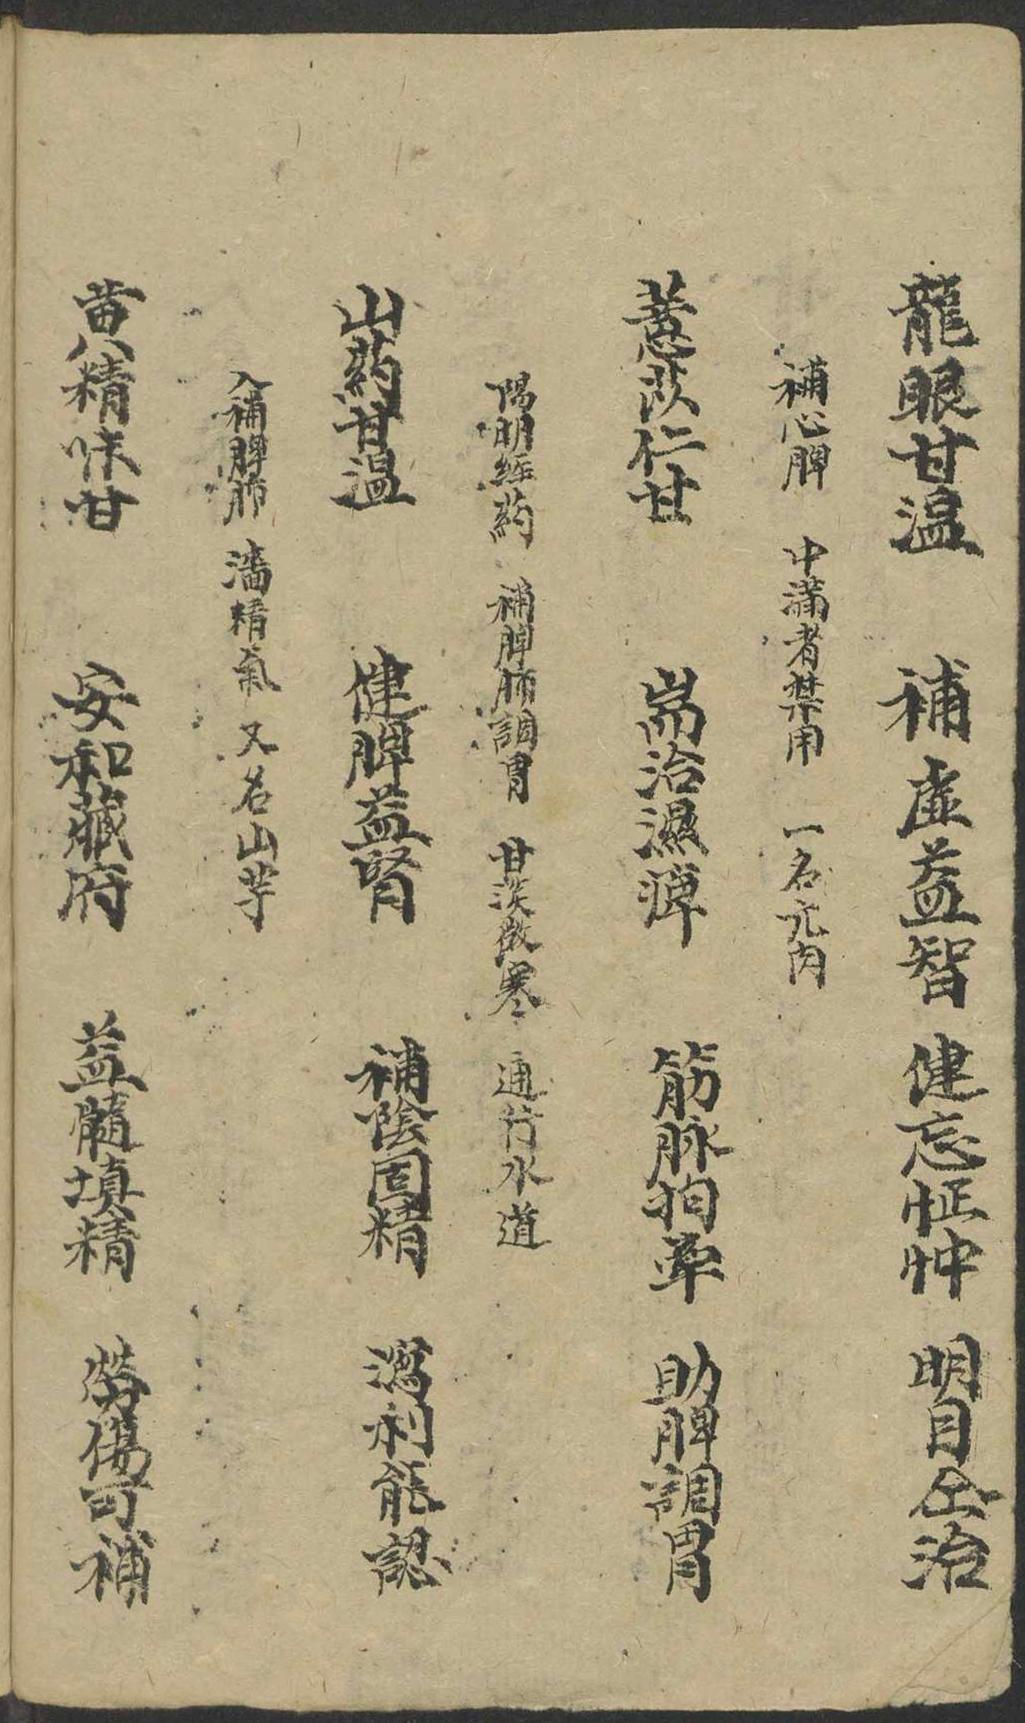 龍眼甘温 補虛益智 健忘怔忡 明目仝治
補心脾 中滿者禁用 一名元肉
薏苡仁甘 耑治濕痹 筋脉拘牽 助脾調胃
陽明經药 補脾肺調胃 甘淡微寒 通行水道
山药甘温 健脾益腎 補陰固精 瀉利能認
入補脾肺 濇精氣 又名山芋
黄精味甘 安和藏府 益髓填精 勞傷可補